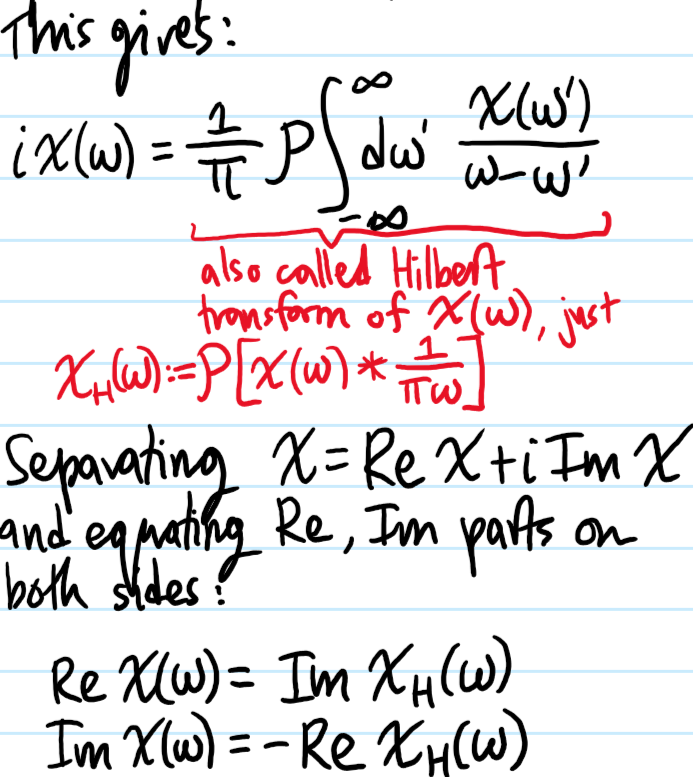 This gives:
iχ(ω) = 1/π P∫_{-∞}^{∞} dω' χ(ω')/(ω-ω')
also called Hilbert
transform of χ(ω), just
χ_H(ω):=P[χ(ω) * 1/(πω)]
Separating χ = Re χ + i Im χ
and equating Re, Im parts on
both sides:
Re χ(ω) = Im χ_H(ω)
Im χ(ω) = - Re χ_H(ω)